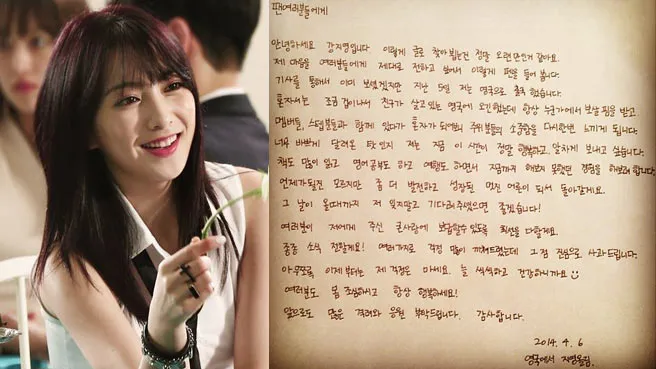 팬여러분들에게
안녕하세요 강지영입니다 이렇게 글로 찾아뵙는건 정말 오랜만인거 같아요.
제 마음을 여러분들에게 제대로 전하고 싶어서 이렇게 펜을 들어 봅니다.
기사를 통해서 이미 보셨겠지만 지난 5일 저는 영국으로 출국 했습니다.
혼자서는 조금 겁이나서 친구가 살고있는 영국에 오긴했는데 항상 누군가에서 보살핌을 받고.
멤버들, 스텝분들과 함께 있다가 혼자가 되어보니 주위분들의 소중함을 다시한번 느끼게 됩니다.
너무 바쁘게 달려온 탓 인지 저는 지금 이 시간이 정말 행복하고 알차게 보내고 있습니다.
책도 많이 읽고 영어공부도 하고 여행도 하면서 지금까지 해보지 못했던 경험을 해보려 합니다.
언제가될진 모르지만 좀 더 발전하고 성장된 멋진 어른이 되서 돌아갈게요.
그 날이 올때까지 저 잊지말고 기다려주셨으면 좋겠습니다!
여러분이 저에게 주신 큰사랑에 보답할수 있도록 최선을 다할게요.
종종 소식 전할게요! 여러가지로 걱정 많이 끼쳐드렸는데 그 점 진심으로 사과드립니다.
아무쪼록 이제부터는 제 걱정은 마세요. 늘 씩씩하고 건강하니까요
여러분도 몸 조심하시고 항상 행복하세요!
앞으로도 많은 격려와 응원 부탁드립니다. 감사합니다.
2014. 4. 6
영국에서 지영올림.